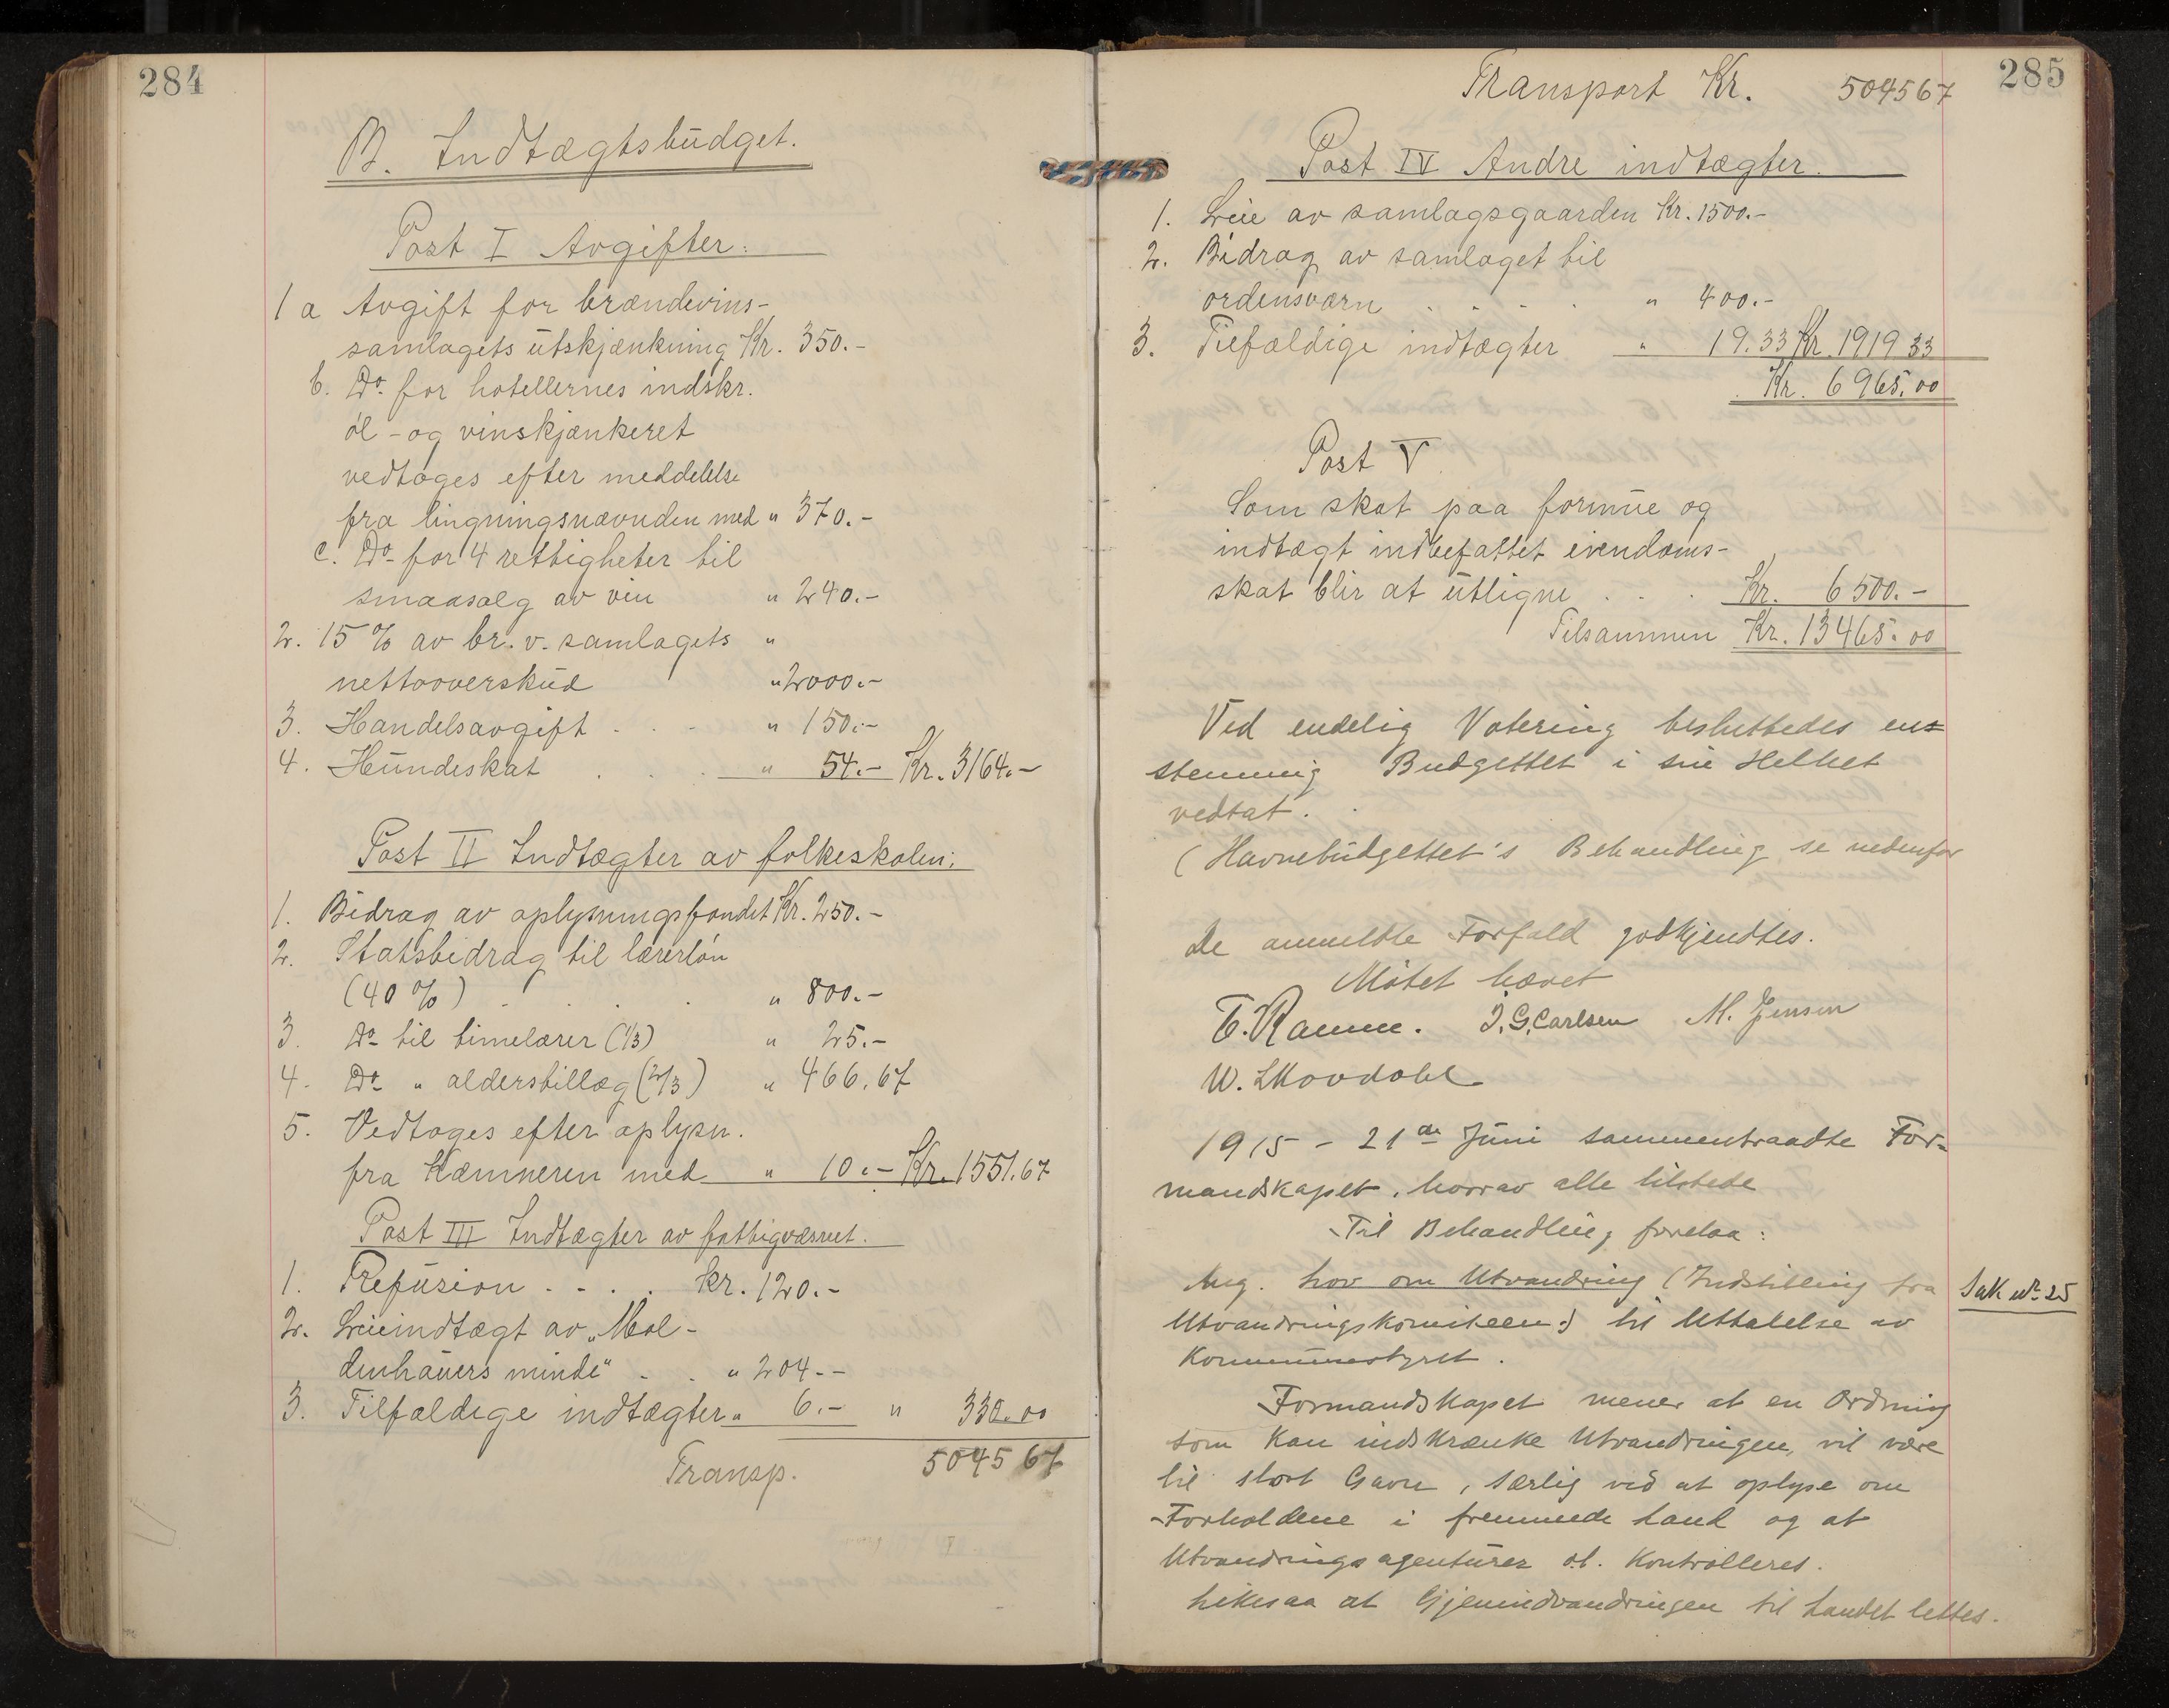 284
B. Indtægtsbudget.
Post I Avgifter:
1 a Avgift for brændevins-
samlagets utskjænkning Kr. 350.-
b. Do. for hotellernes indskr.
øl- og vinskjænkeret
vedtages efter meddelelse
fra ligningsnævnden med " 370.-
c. Do. for 4 rettigheter til
smaasalg av vin " 240.-
2. 15 % av br. v. samlagets "
nettooverskud " 2000.-
3. Handelsavgift . . - " 150.-
4. Hundeskat . . . " 54.- Kr. 3164.-
Post II Indtægter av folkeskolen:
1. Bidrag av oplysningsfondet Kr. 250.-
2. Statsbidrag til lærerløn
(40 %) . . . . " 800.-
3. Do. til timelærer (1/3) " 25.-
4. Do. " alderstillæg (2/3) " 466.67
5. Vedtages efter oplysn.
fra Kæmneren med " 10.- Kr. 1551.67
Post III Indtægter av fattigvæsnet.
1. Refusion . - . . kr. 120.-
2. Leieindtægt av „Mol-
denhauers minde" - . " 204.-
3. Tilfældige indtægter " 6.- " 330.00
Transp. 5045 67
285
Transport Kr. 504567
Post IV Andre indtægter.
1. Leie av samlagsgaarden Kr. 1500.-
2. Bidrag av samlaget til
ordensværn . . . . " 400.-
3. Tilfældige indtægter " 19.33 Kr. 1919 33
Kr. 6965.00
Post V
Som skat paa formue og
indtægt indbefattet eiendoms-
skat blir at utligne . . . Kr. 6500.-
Tilsammen Kr. 13465.00
Ved endelig Votering besluttedes en-
stemmig Budgettet i sin Helhet
vedtat.
(Havnebudgettet's Behandling se nedenfor
De anmeldte Forfald godkjendtes.
Møtet hævet
T. Ramm. J. G. Carlsen M. Jensen
W. Skovdahl
1915 - 21de Juni sammentraadte For-
mandskapet, hvorav alle tilstede
Til Behandling forelaa:
Ang. Lov om Utvandring (Indstilling fra
Sak No 25
Utvandringskomiteen:) til Uttalelse av
Kommunestyret.
Formandskapet mener at en Ordning
som kan indskrænke Utvandringen, vil være
til stort Gavn, særlig ved at oplyse om
Forholdene i fremmede Land og at
Utvandringsagenturer o.l. Kontrolleres.
Likesaa at Gjenindvandringen til Landet lettes.